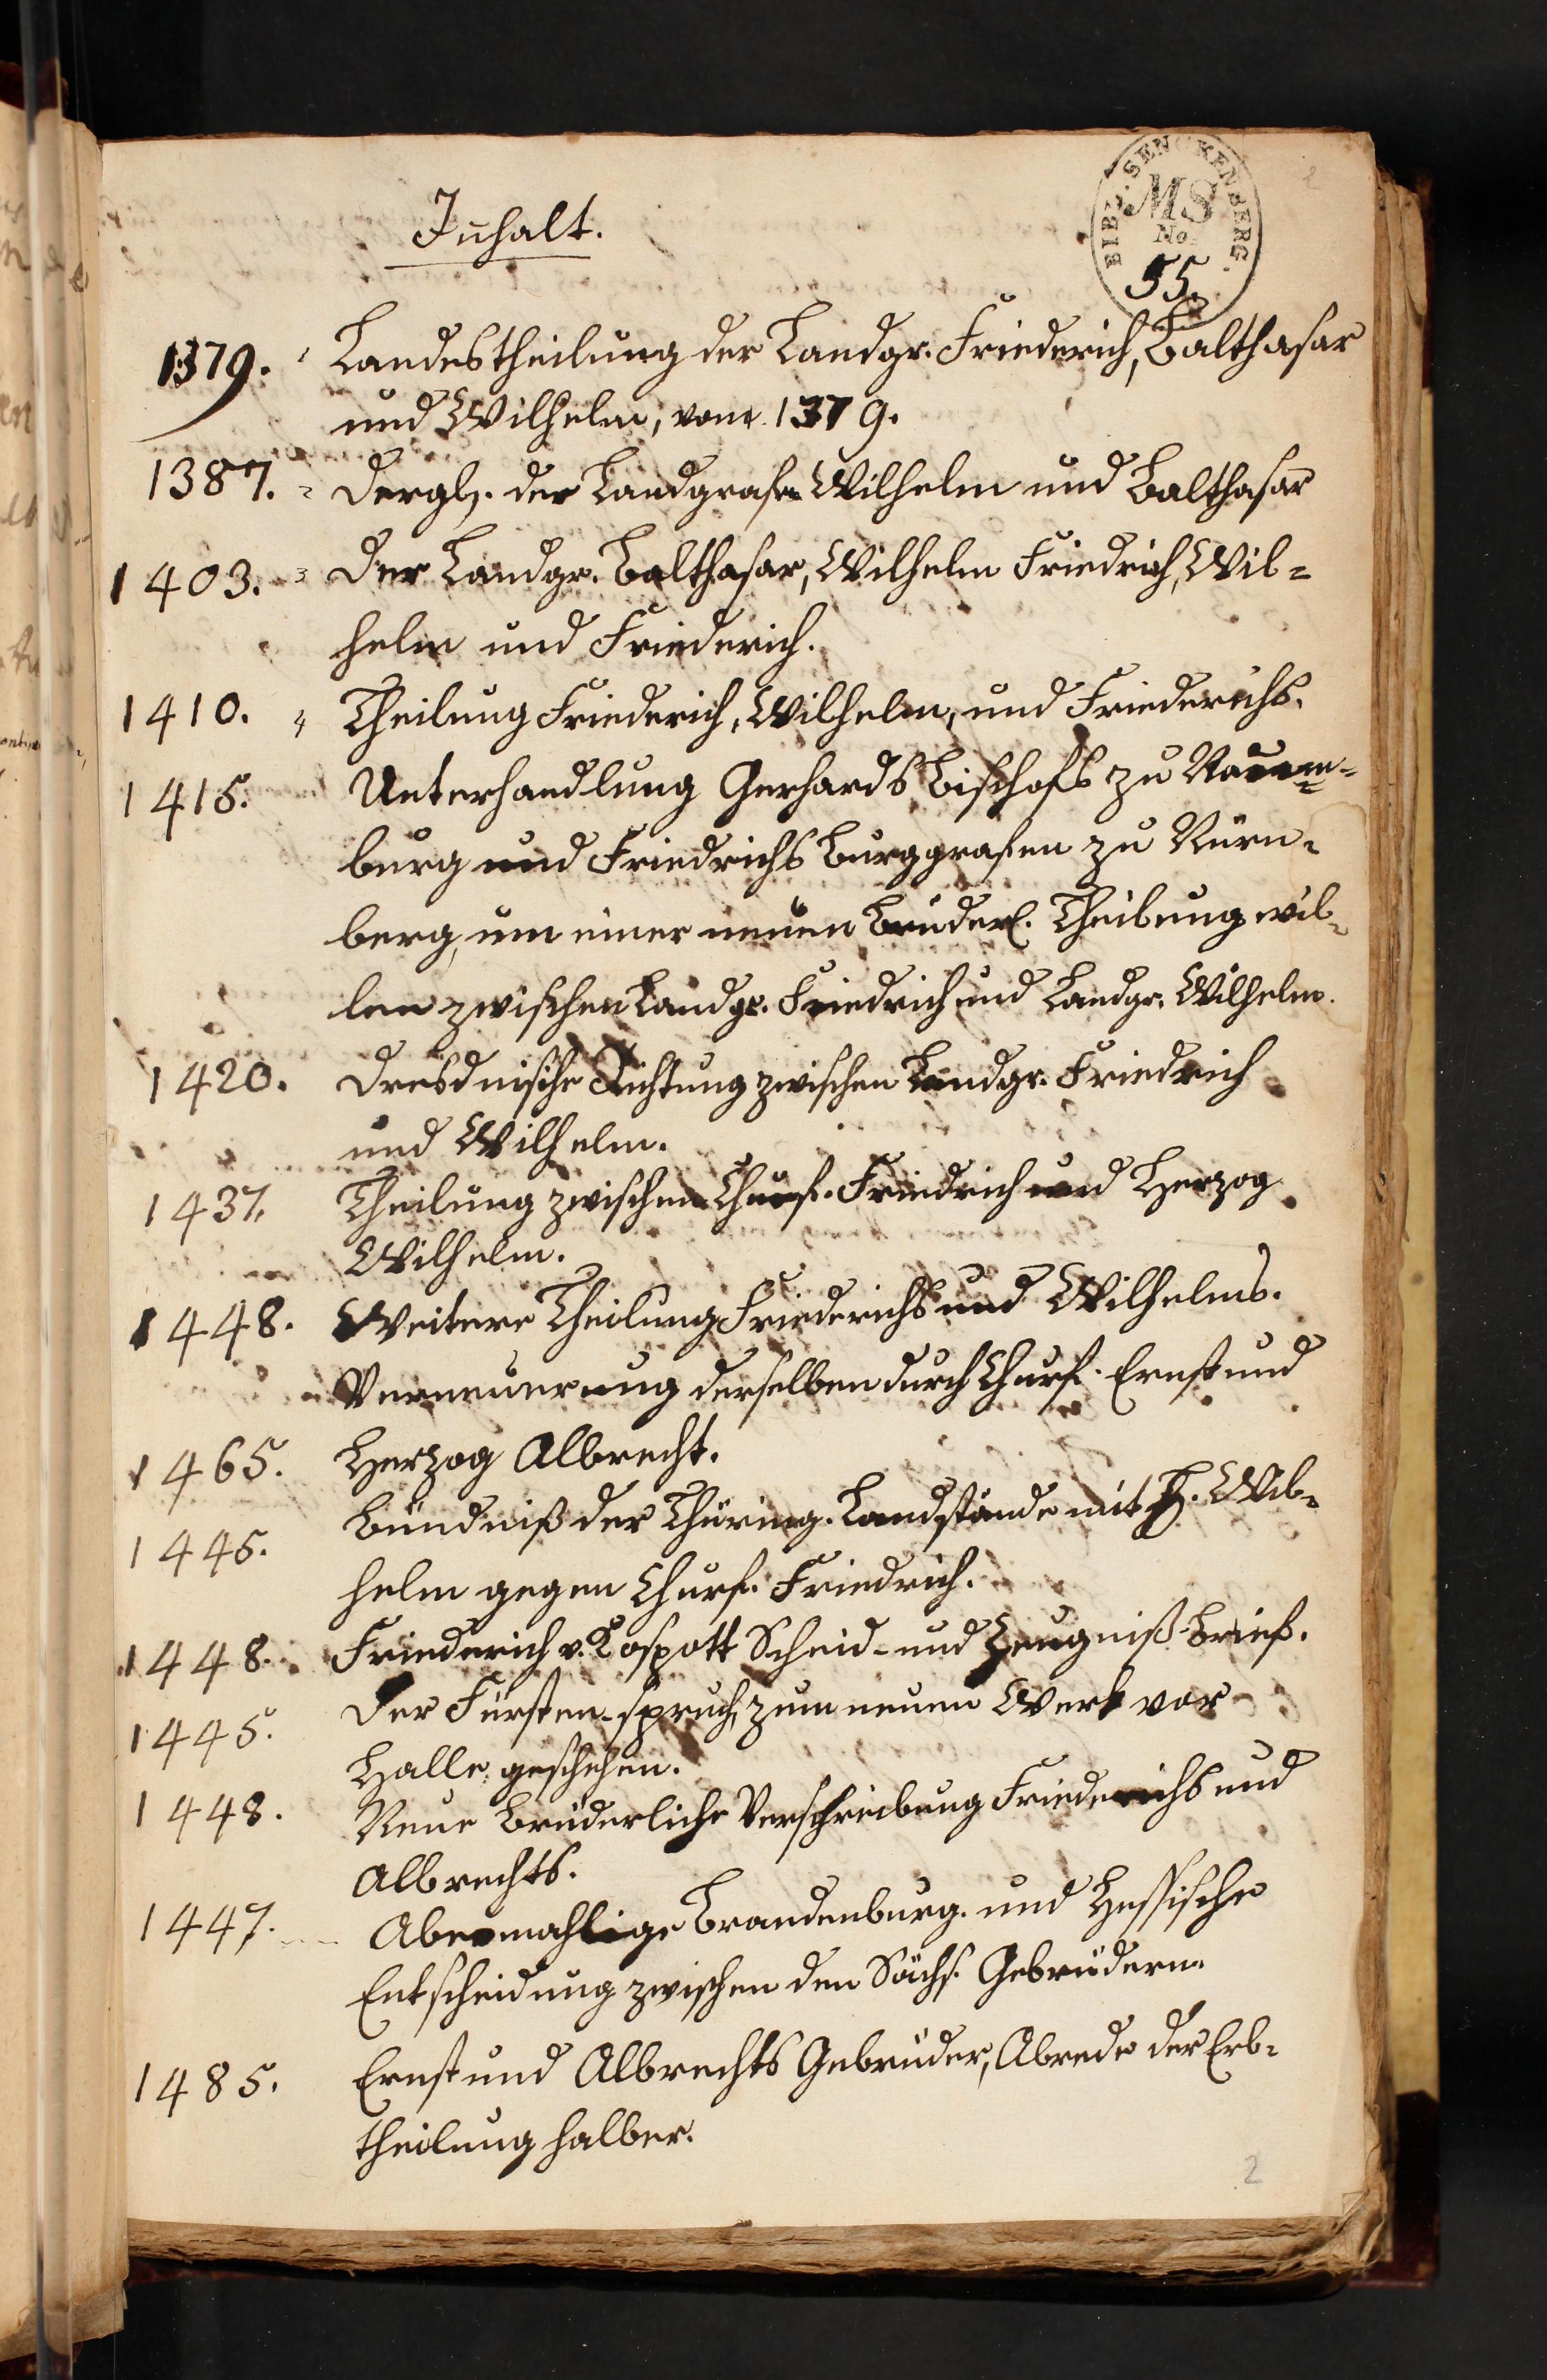 Inhalt.
BIBL. SENCKENBERG.
MS
No.
55.
1379. Landestheilung der Landgr. Friederich, Balthasar
und Wilhelm, vom 1379.
1387. 2 Dergl. der Landgrafen Wilhelm und Balthasar
1403. 3 Der Landgr. Balthasar, Wilhelm Friedrich, Wil=
helm und Friederich.
1410. 4 Theilung Friederich, Wilhelm, und Friederichs.
1415. Unterhandlung Gerhards Bischofs zu Naum=
burg und Friedrichs Burggrafen zu Nürn=
berg, um einer neuen Bruderl. Theilung wil=
len zwischen Landgr. Friedrich und Landgr. Wilhelm.
1420. Dresdnische Richtung zwischen Landgr. Friedrich
und Wilhelm.
1437. Theilung zwischen Churf. Friedrich und Herzog
Wilhelm.
1448. Weitere Theilung Friederichs und Wilhelms.
Verneuerung derselben durch Churf. Ernst und
1465. Herzog Albrecht.
1445. Bündniß der Thüring. Landstände mit H. Wil=
helm gegen Churf. Friedrich.
1448. Friederich v. Kospott Scheid- und Zeugniß-Brief.
1445. Der Fürsten-spruch, zum neuen Werk vor
Halle geschehen.
1448. Neue Brüderliche Verschreibung Friederichs und
Albrechts.
1447. Abermahlige Brandenburg. und Hessische
Entscheidung zwischen den Sächs. Gebrüdern.
1485. Ernst und Albrechts Gebrüder, Abrede der Erb=
theilung halber.
2